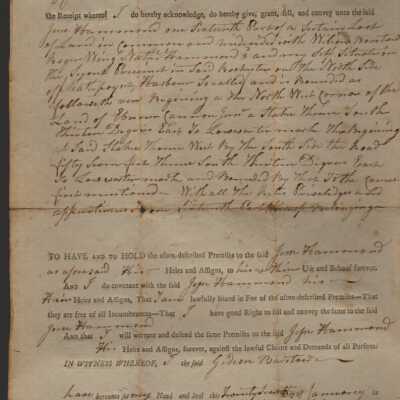 the Receipt whereof I do hereby acknowledge, do hereby give, grant, sell, and convey unto the said
Jesse Hammond one Sixteenth Part of a Certain Lott
of Land in Common and undivided with
Hammond and Situate in
the Second Precinct in said Rochester on the North Side
of Harbour So called and is Bounded as
follows viz Begining at the North West Corner of the
Land of Ebenezer Cannon Jun a Stake Thence South
thirteen Degrees East To Lowwater mark Then Begining
at Said Stake Thence West By the South Side the Road
fifty Seven feet Thence South Thirteen Degrees East
To Lowwater mark and Bounded By that To the Corner
first mentioned With all the Priveledges and
appurtinances
TO HAVE AND TO HOLD the afore-described Premises to the said Jesse Hammond
as aforesaid His Heirs and Assigns, to his Use and Behoof forever.
AND I do covenant with the said Jesse Hammond his
Heirs and Assigns, That I am lawfully seized in Fee of the afore-described Premises—That
they are free of all Incumbrances—That I have good Right to sell and convey the same to the said
Jesse Hammond
And that I will warrant and defend the same Premises to the said Jesse Hammond
His Heirs and Assigns, forever, against the lawful Claims and Demands of all Persons.
IN WITNESS WHEREOF, I the said Gideon Barstow
have hereunto set my Hand and Seal this Twenty day of January